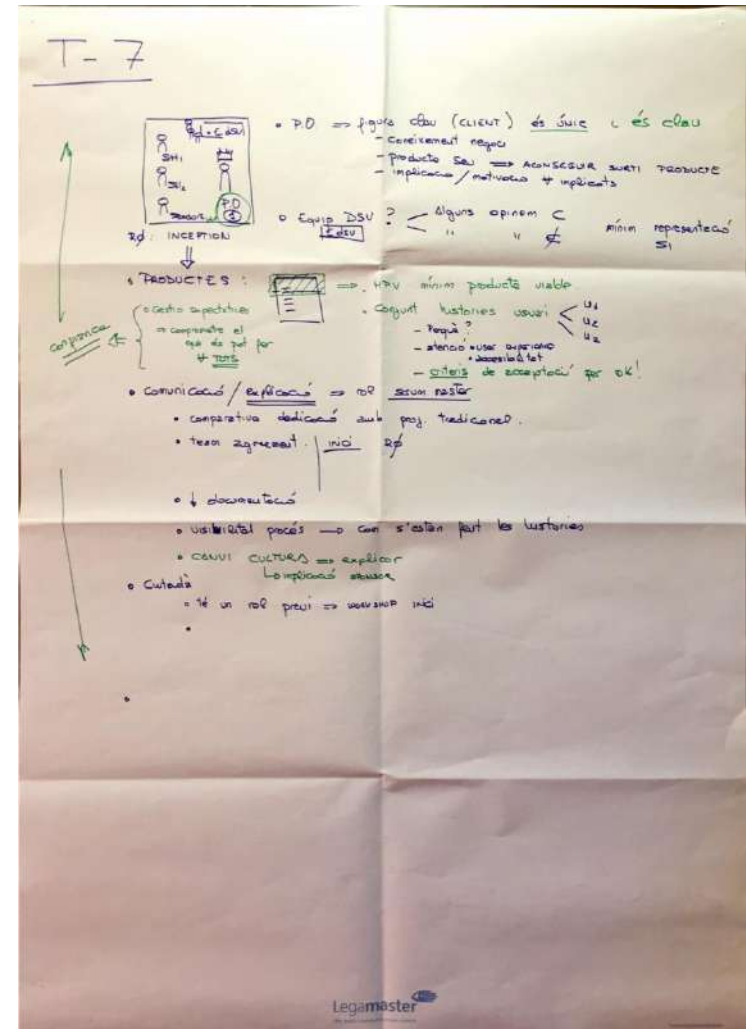 T-7
SH1
SH2
SPONSOR
P.O
1
RØ: INCEPTION
• P.O => figura clau (CLIENT) és únic i és clau
- Coneixement negoci
- producte seu => ACONSEGUIR SURTI PRODUCTE
- implicació / motivació # implicats
• Equip DSV ? Alguns opinem C
E dsv
" " ₡
mínim representació
S1
• PRODUCTES : => . MPV mínim producte viable.
. Conjunt histories usuari
U1
U2
U3
- Perquè?
- atenció • user experience
• accessibilitat
- criteris de acceptació per OK!
confiança
• Gestió expectatives
=> comprometre el
que es pot fer
# TOTS
• Comunicació / explicació => rol scrum master
• comparativa dedicació amb proj. tradicional.
• team agreement. inici RØ
• ↓ documentació
• visibilitat procés —> com s'estan fent les histories
• CANVI CULTURA => explicar
implicació SPONSOR
• Ciutadà
• té un rol previ => WORKSHOP inici
•
•
Legamaster